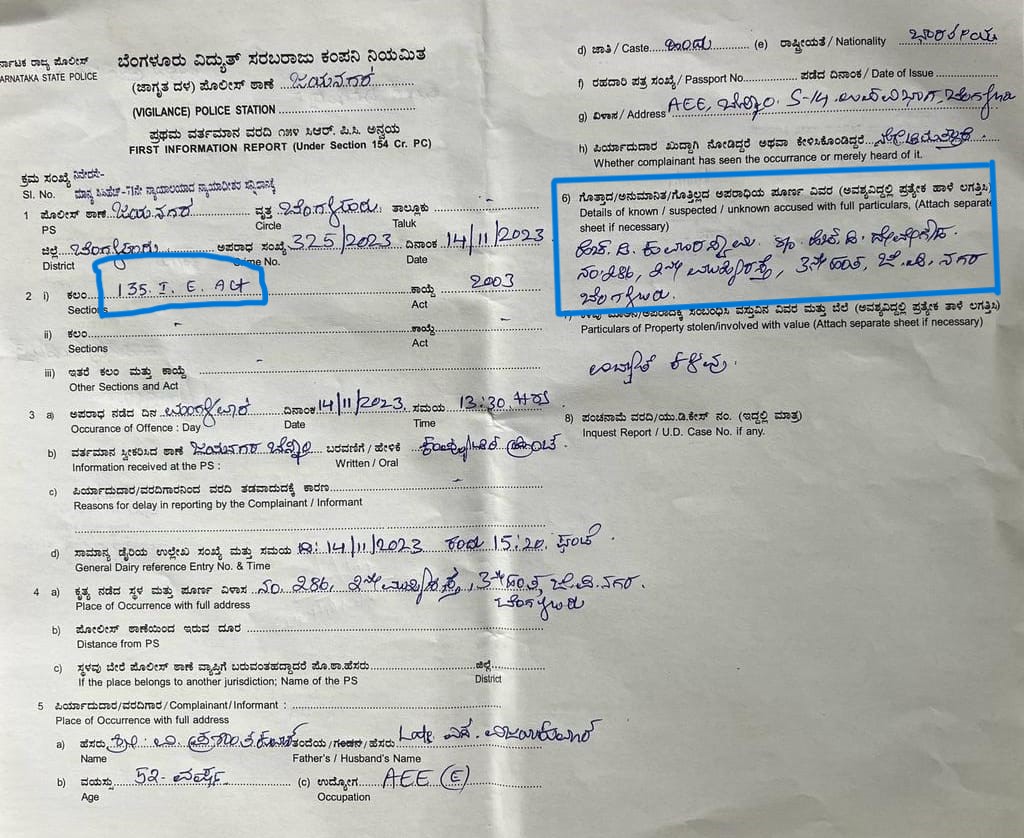 ರ್ನಾಟಕ ರಾಜ್ಯ ಪೊಲೀಸ್
ARNATAKA STATE POLICE
ಬೆಂಗಳೂರು ವಿದ್ಯುತ್ ಸರಬರಾಜು ಕಂಪನಿ ನಿಯಮಿತ
(ಜಾಗೃತ ದಳ) ಪೊಲೀಸ್ ಠಾಣೆ ಜಯನಗರ
(VIGILANCE) POLICE STATION
ಪ್ರಥಮ ವರ್ತಮಾನ ವರದಿ ೧೫೪ ಸಿಆರ್.ಪಿ.ಸಿ ಅನ್ವಯ
FIRST INFORMATION REPORT (Under Section 154 Cr. PC)
ಕ್ರಮ ಸಂಖ್ಯೆ
Sl. No.
1 ಪೊಲೀಸ್ ಠಾಣೆ ಜಯನಗರ ವೃತ್ತ ಬೆಂಗಳೂರು ತಾಲ್ಲೂಕು
PS Circle Taluk
ಜಿಲ್ಲೆ ಬೆಂಗಳೂರು ಅಪರಾಧ ಸಂಖ್ಯೆ 325/2023 ದಿನಾಂಕ 14/11/2023
District Crime No. Date
2 i) ಕಲಂ 135. I. E. Act ಕಾಯ್ದೆ 2003
Sections Act
ii) ಕಲಂ ಕಾಯ್ದೆ
Sections Act
iii) ಇತರೆ ಕಲಂ ಮತ್ತು ಕಾಯ್ದೆ
Other Sections and Act
3 a) ಅಪರಾಧ ನಡೆದ ದಿನ ಮಂಗಳವಾರ ದಿನಾಂಕ 14/11/2023. ಸಮಯ 13:30. HRS
Occurance of Offence : Day Date Time
b) ವರ್ತಮಾನ ಸ್ವೀಕರಿಸಿದ ಠಾಣೆ ಜಯನಗರ ಬೆವಿಕಂ ಬರವಣಿಗೆ / ಹೇಳಿಕೆ
Information received at the PS : Written / Oral
c) ಪಿರ್ಯಾದುದಾರ/ವರದಿಗಾರನಿಂದ ವರದಿ ತಡವಾದುದಕ್ಕೆ ಕಾರಣ
Reasons for delay in reporting by the Complainant / Informant
d) ಸಾಮಾನ್ಯ ಡೈರಿಯ ಉಲ್ಲೇಖ ಸಂಖ್ಯೆ ಮತ್ತು ಸಮಯ ದಿ: 14/11/2023 ರಂದು 15:20. ಘಂಟೆ
General Dairy reference Entry No. & Time
4 a) ಕೃತ್ಯ ನಡೆದ ಸ್ಥಳ ಮತ್ತು ಪೂರ್ಣ ವಿಳಾಸ ನಂ. 286, 2ನೇ ಮುಖ್ಯರಸ್ತೆ, 3ನೇ ಹಂತ, ಜೆ.ಪಿ. ನಗರ.
Place of Occurrence with full address ಬೆಂಗಳೂರು
b) ಪೋಲೀಸ್ ಠಾಣೆಯಿಂದ ಇರುವ ದೂರ
Distance from PS
c) ಸ್ಥಳವು ಬೇರೆ ಪೊಲೀಸ್ ಠಾಣೆ ವ್ಯಾಪ್ತಿಗೆ ಬರುವಂತಹದ್ದಾದರೆ ಪೊ.ಠಾ.ಹೆಸರು ಜಿಲ್ಲೆ
If the place belongs to another jurisdiction; Name of the PS District
5 ಪಿರ್ಯಾದುದಾರ/ವರದಿಗಾರ/Complainant/Informant :
Place of Occurrence with full address
a) ಹೆಸರು ಶ್ರೀ. ಪ್ರಶಾಂತಕುಮಾರ್ ತಂದೆಯ/ಗಂಡನ/ಹೆಸರು Late. ವಿಜಯಕುಮಾರ್
Name Father's / Husband's Name
b) ವಯಸ್ಸು 52- ವರ್ಷ (c) ಉದ್ಯೋಗ AEE (E)
Age Occupation
d) ಜಾತಿ / Caste ಹಿಂದು (e) ರಾಷ್ಟ್ರೀಯತೆ / Nationality ಭಾರತೀಯ
f) ರಹದಾರಿ ಪತ್ರ ಸಂಖ್ಯೆ / Passport No. ಪಡೆದ ದಿನಾಂಕ / Date of Issue
g) ವಿಳಾಸ / Address AEE, ಬೆವಿಕಂ. S-14. ಉಪವಿಭಾಗ, ಬೆಂಗಳೂರು
h) ಪಿರ್ಯಾದುದಾರ ಖುದ್ದಾಗಿ ನೋಡಿದ್ದರೆ ಅಥವಾ ಕೇಳಿಸಿಕೊಂಡಿದ್ದರೆ
Whether complainant has seen the occurrence or merely heard of it.
6) ಗೊತ್ತಾದ/ಅನುಮಾನಿತ/ಗೊತ್ತಿಲ್ಲದ ಅಪರಾಧಿಯ ಪೂರ್ಣ ವಿವರ (ಅವಶ್ಯವಿದ್ದಲ್ಲಿ ಪ್ರತ್ಯೇಕ ಹಾಳೆ ಲಗತ್ತಿಸಿ)
Details of known / suspected / unknown accused with full particulars, (Attach separate
sheet if necessary)
ಹೆಚ್. ಡಿ. ಕುಮಾರಸ್ವಾಮಿ. S/o ಹೆಚ್. ಡಿ. ದೇವೇಗೌಡ.
ನಂ:286, 2ನೇ ಮುಖ್ಯರಸ್ತೆ, 3ನೇ ಹಂತ, ಜೆ.ಪಿ. ನಗರ
ಬೆಂಗಳೂರು.
ವಸ್ತುವಿನ ವಿವರ ಮತ್ತು ಬೆಲೆ (ಅವಶ್ಯವಿದ್ದಲ್ಲಿ ಪ್ರತ್ಯೇಕ ಹಾಳೆ ಲಗತ್ತಿಸಿ)
Particulars of Property stolen/involved with value (Attach separate sheet if necessary)
ವಿದ್ಯುತ್ ಕಳವು.
8) ಪಂಚನಾಮೆ ವರದಿ/ಯು.ಡಿ.ಕೇಸ್ ನಂ. (ಇದ್ದಲ್ಲಿ ಮಾತ್ರ)
Inquest Report / U.D. Case No. if any.